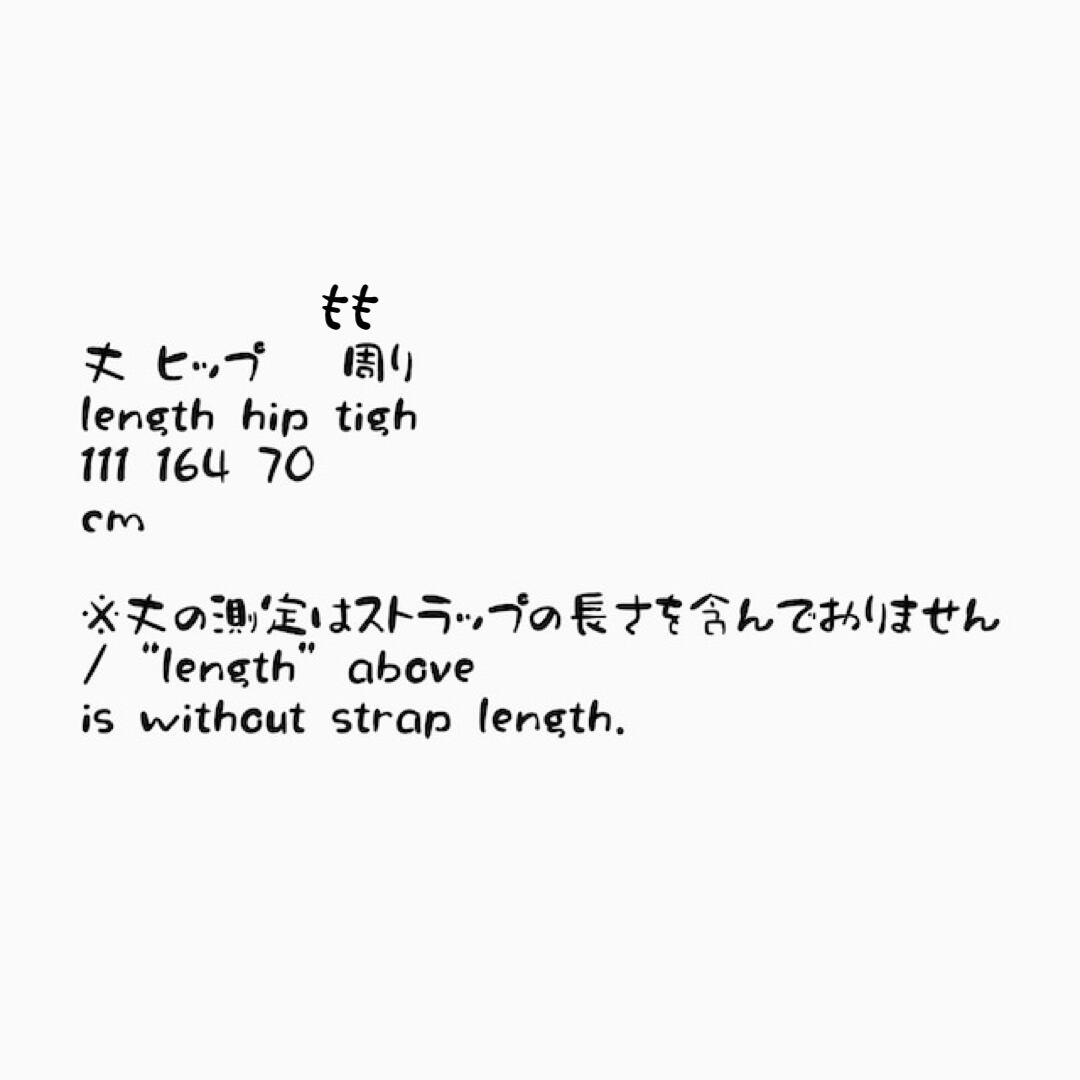 もも
丈 ヒップ 周り
length hip tigh
111 164 70
cm
※丈の測定はストラップの長さを含んでおりません
/ "length" above
is without strap length.